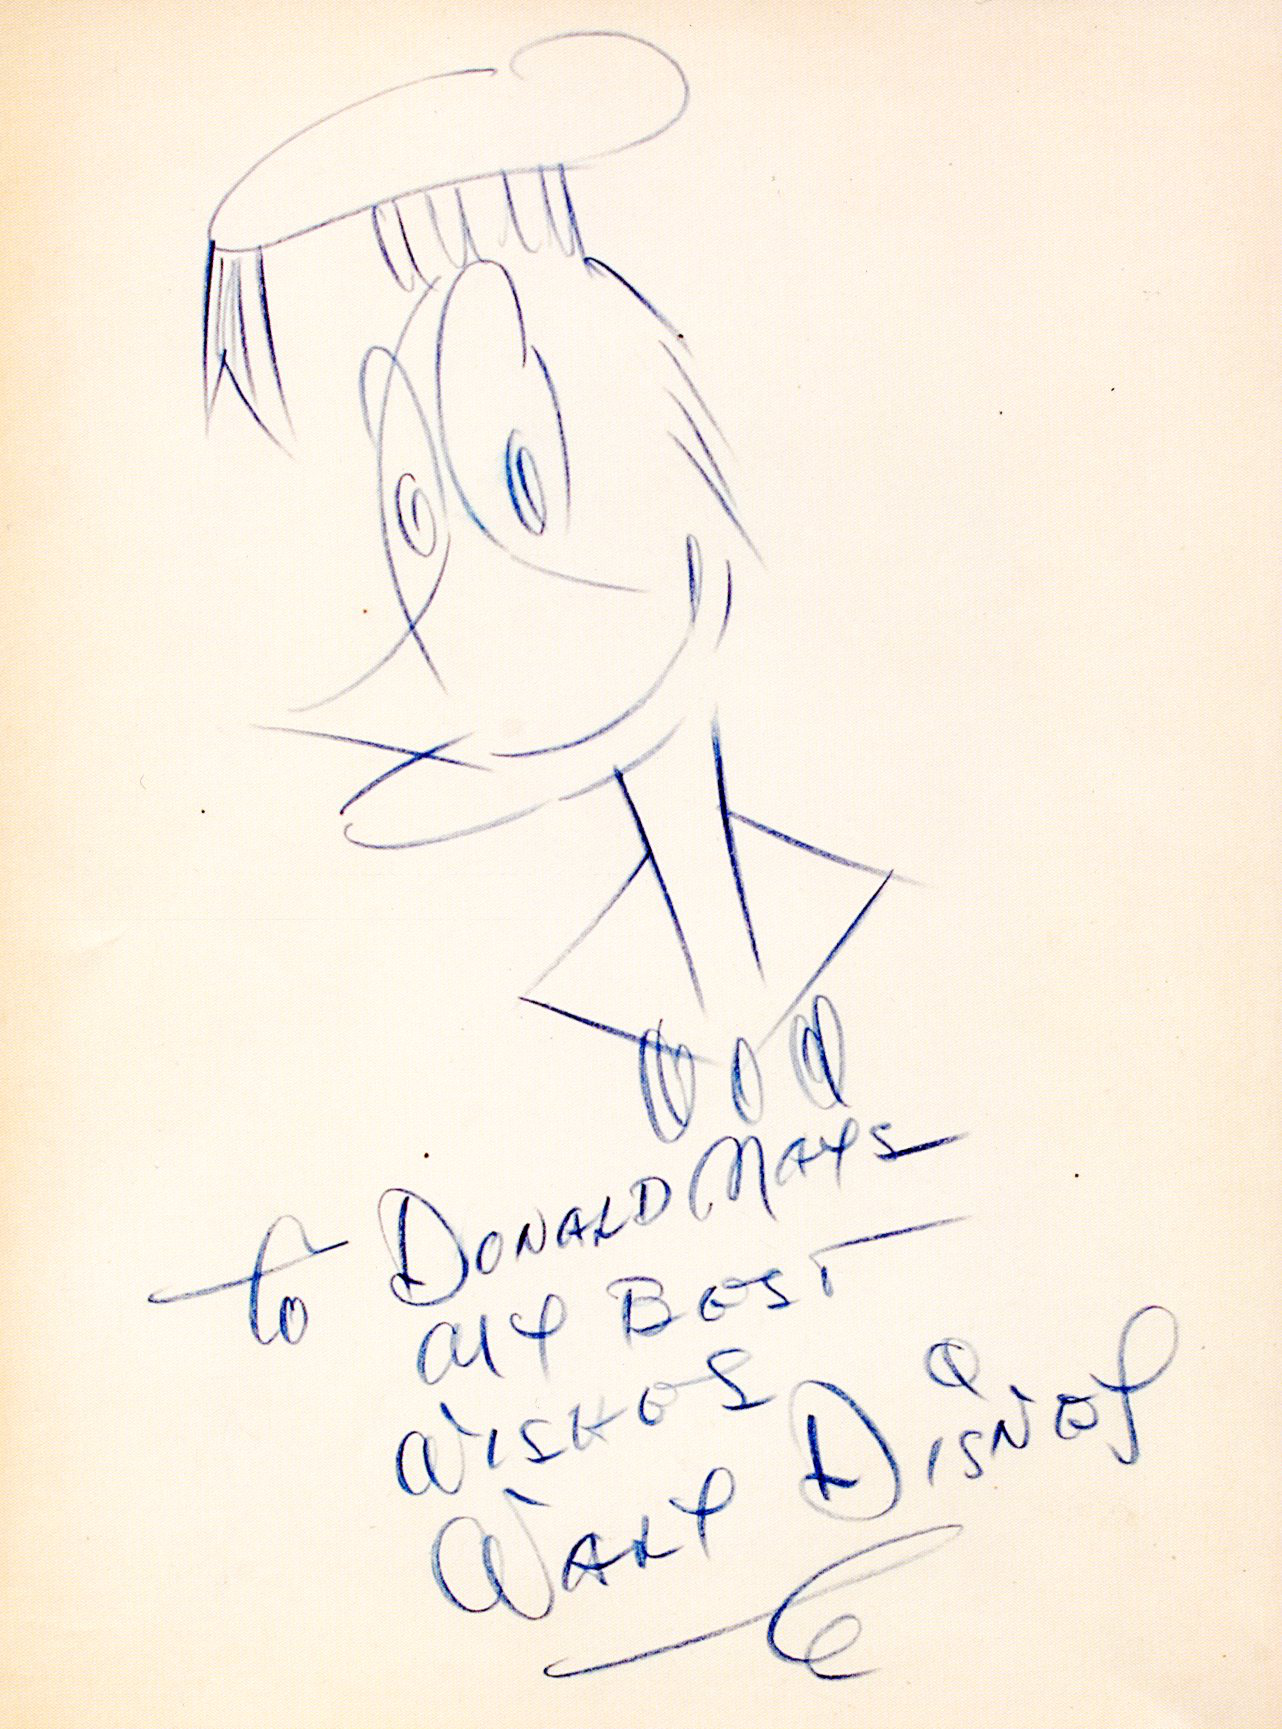 To DONALD MAYS
MY BEST
WISHES
WALT DISNEY